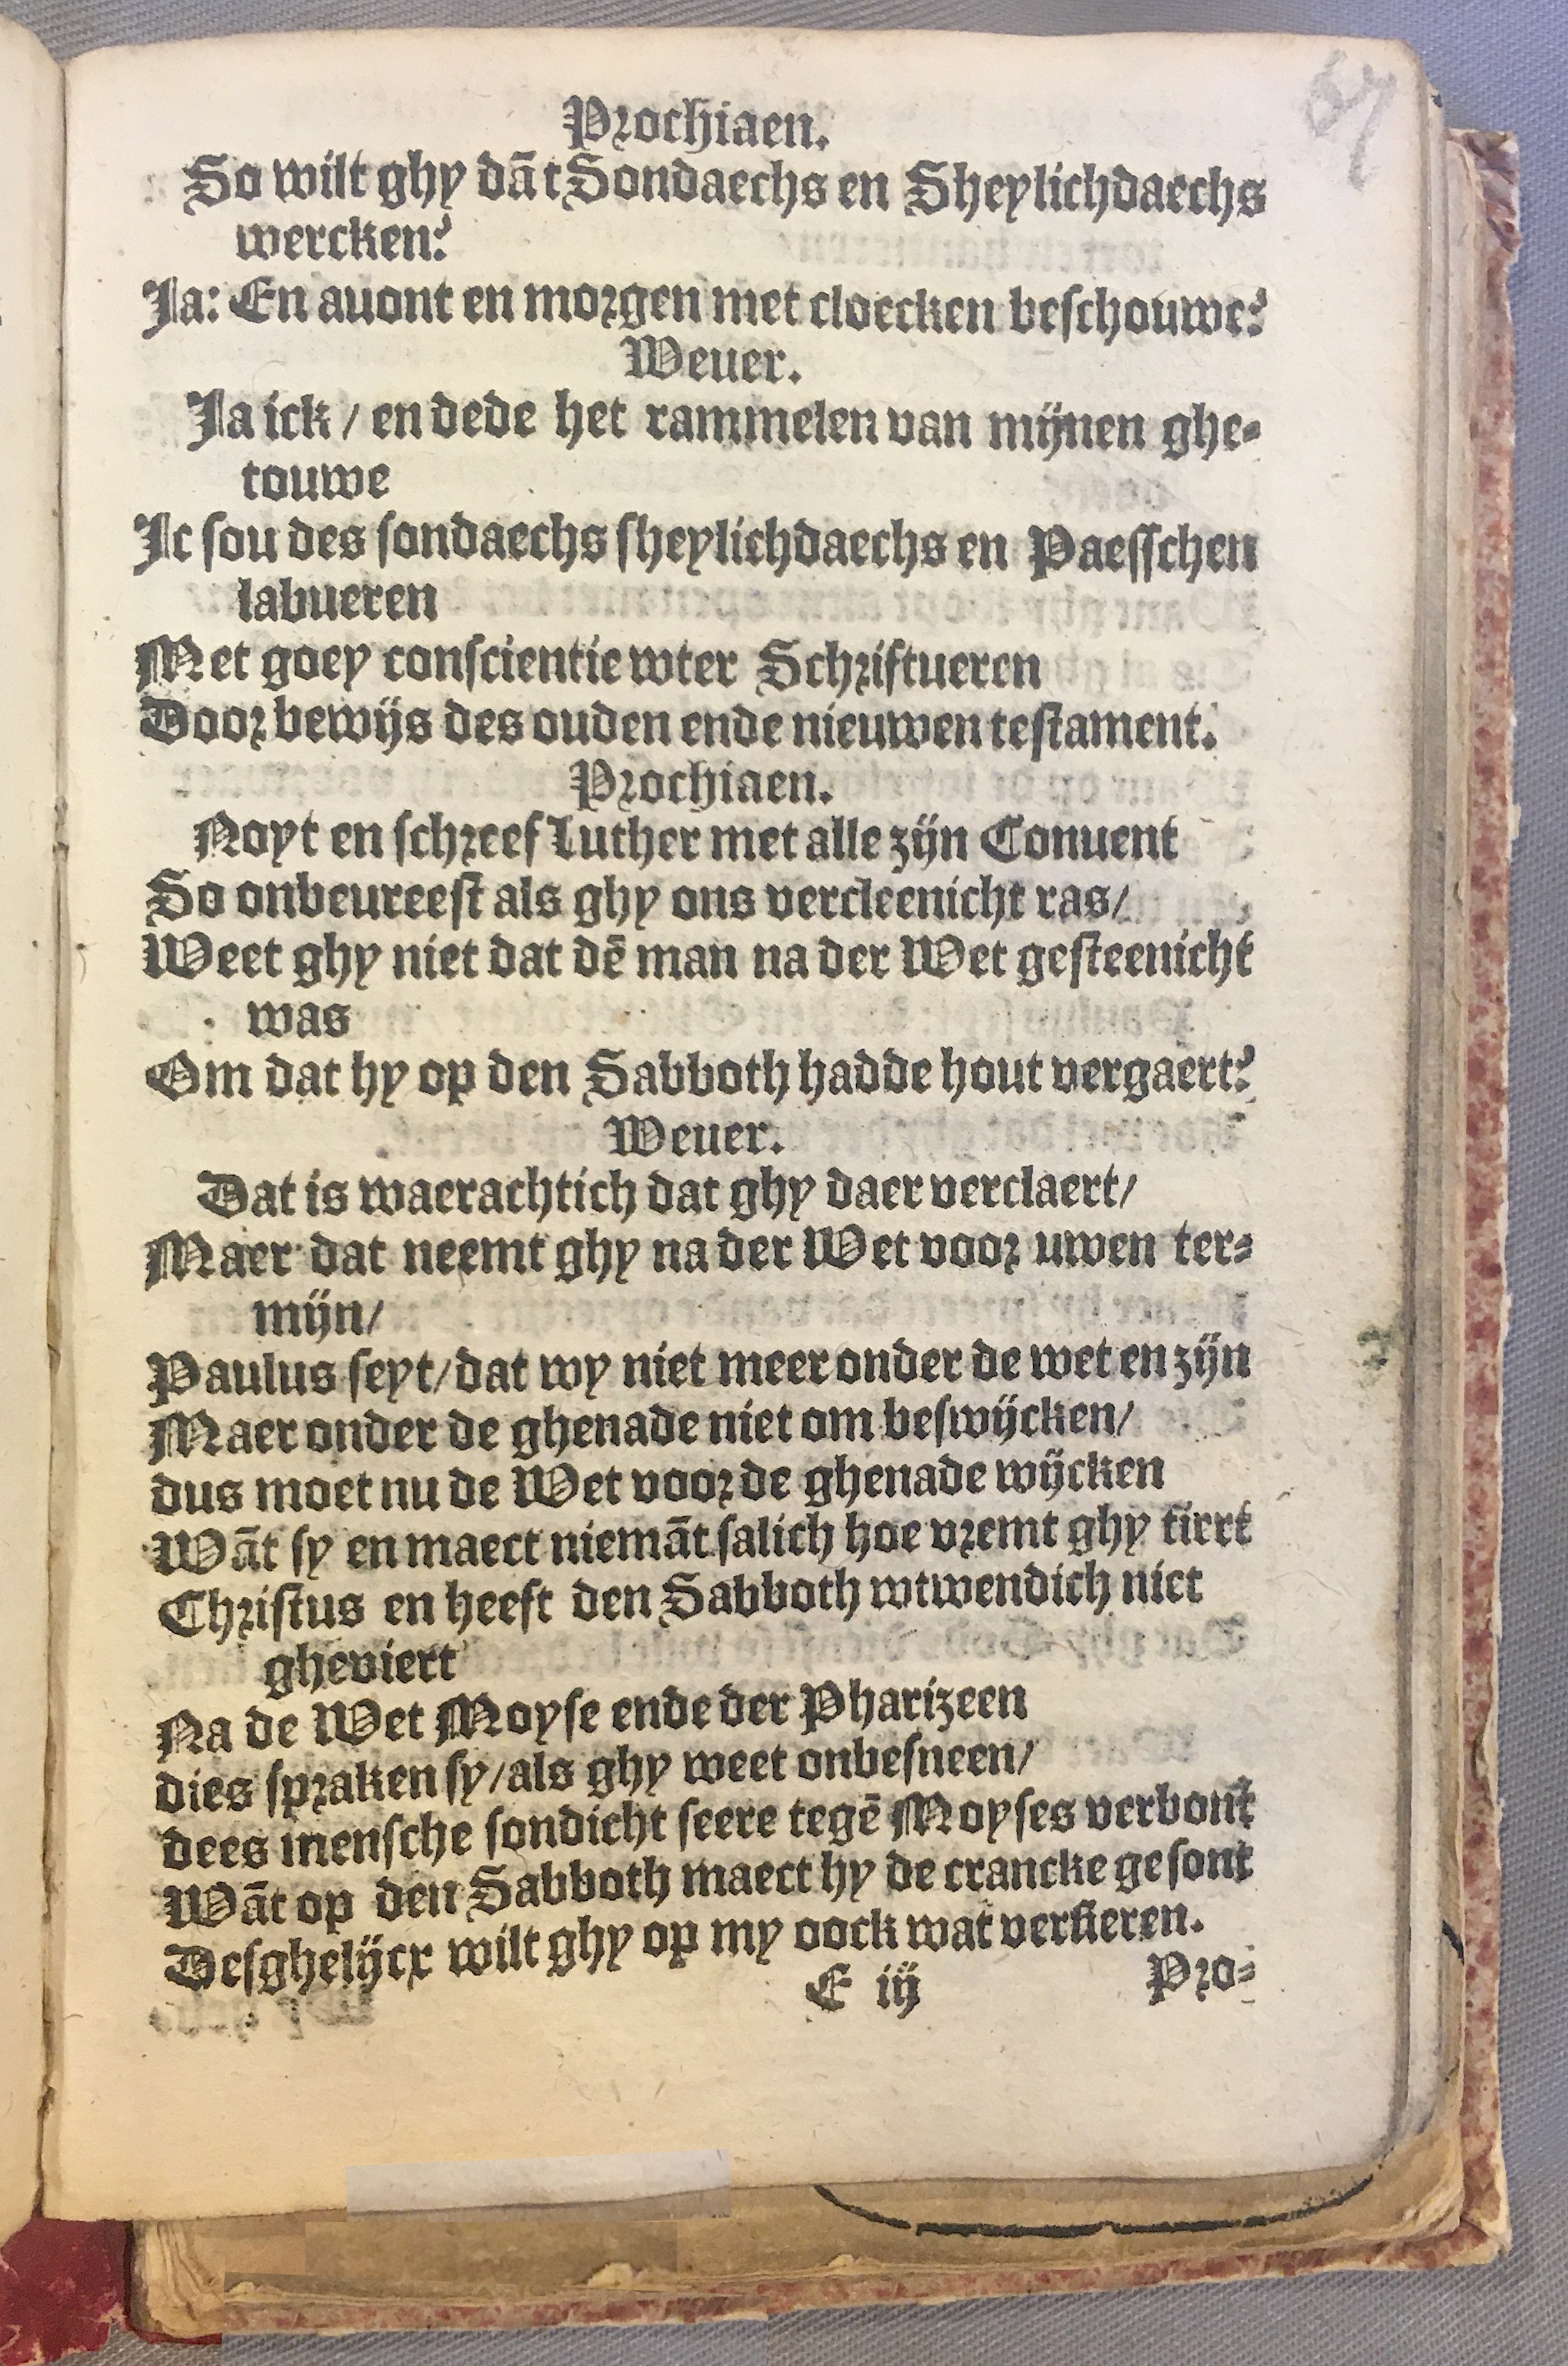 67
Prochiaen.
So wilt ghy dāt Sondaechs en Sheylichdaechs
wercken?
Ja: En auont en morgen met cloecken beschouwe?
Weuer.
Ja ick / en dede het rammelen van mijnen ghe-
touwe
Ic sou des sondaechs sheylichdaechs en Paesschen
labueren
Met goey conscientie wter Schriftueren
Door bewijs des ouden ende nieuwen testament.
Prochiaen.
Noyt en schreef Luther met alle zijn Conuent
So onbeureest als ghy ons vercleenicht ras/
Weet ghy niet dat dē man na der Wet gesteenicht
was
Om dat hy op den Sabboth hadde hout vergaert?
Weuer.
Dat is waerachtich dat ghy daer verclaert/
Maer dat neemt ghy na der Wet voor uwen ter-
mijn/
Paulus seyt/dat wy niet meer onder de wet en zijn
Maer onder de ghenade niet om beswijcken/
dus moet nu de Wet voor de ghenade wijcken
Wāt sy en maect niemāt salich hoe vremt ghy tiert
Christus en heeft den Sabboth wtwendich niet
gheviert
Na de Wet Moyse ende der Pharizeen
dies spraken sy/als ghy weet onbesneen/
dees mensche sondicht seere tegē Moyses verbont
Wāt op den Sabboth maect hy de crancke gesont
Desghelijcx wilt ghy op my oock wat versieren.
E iij Pro-